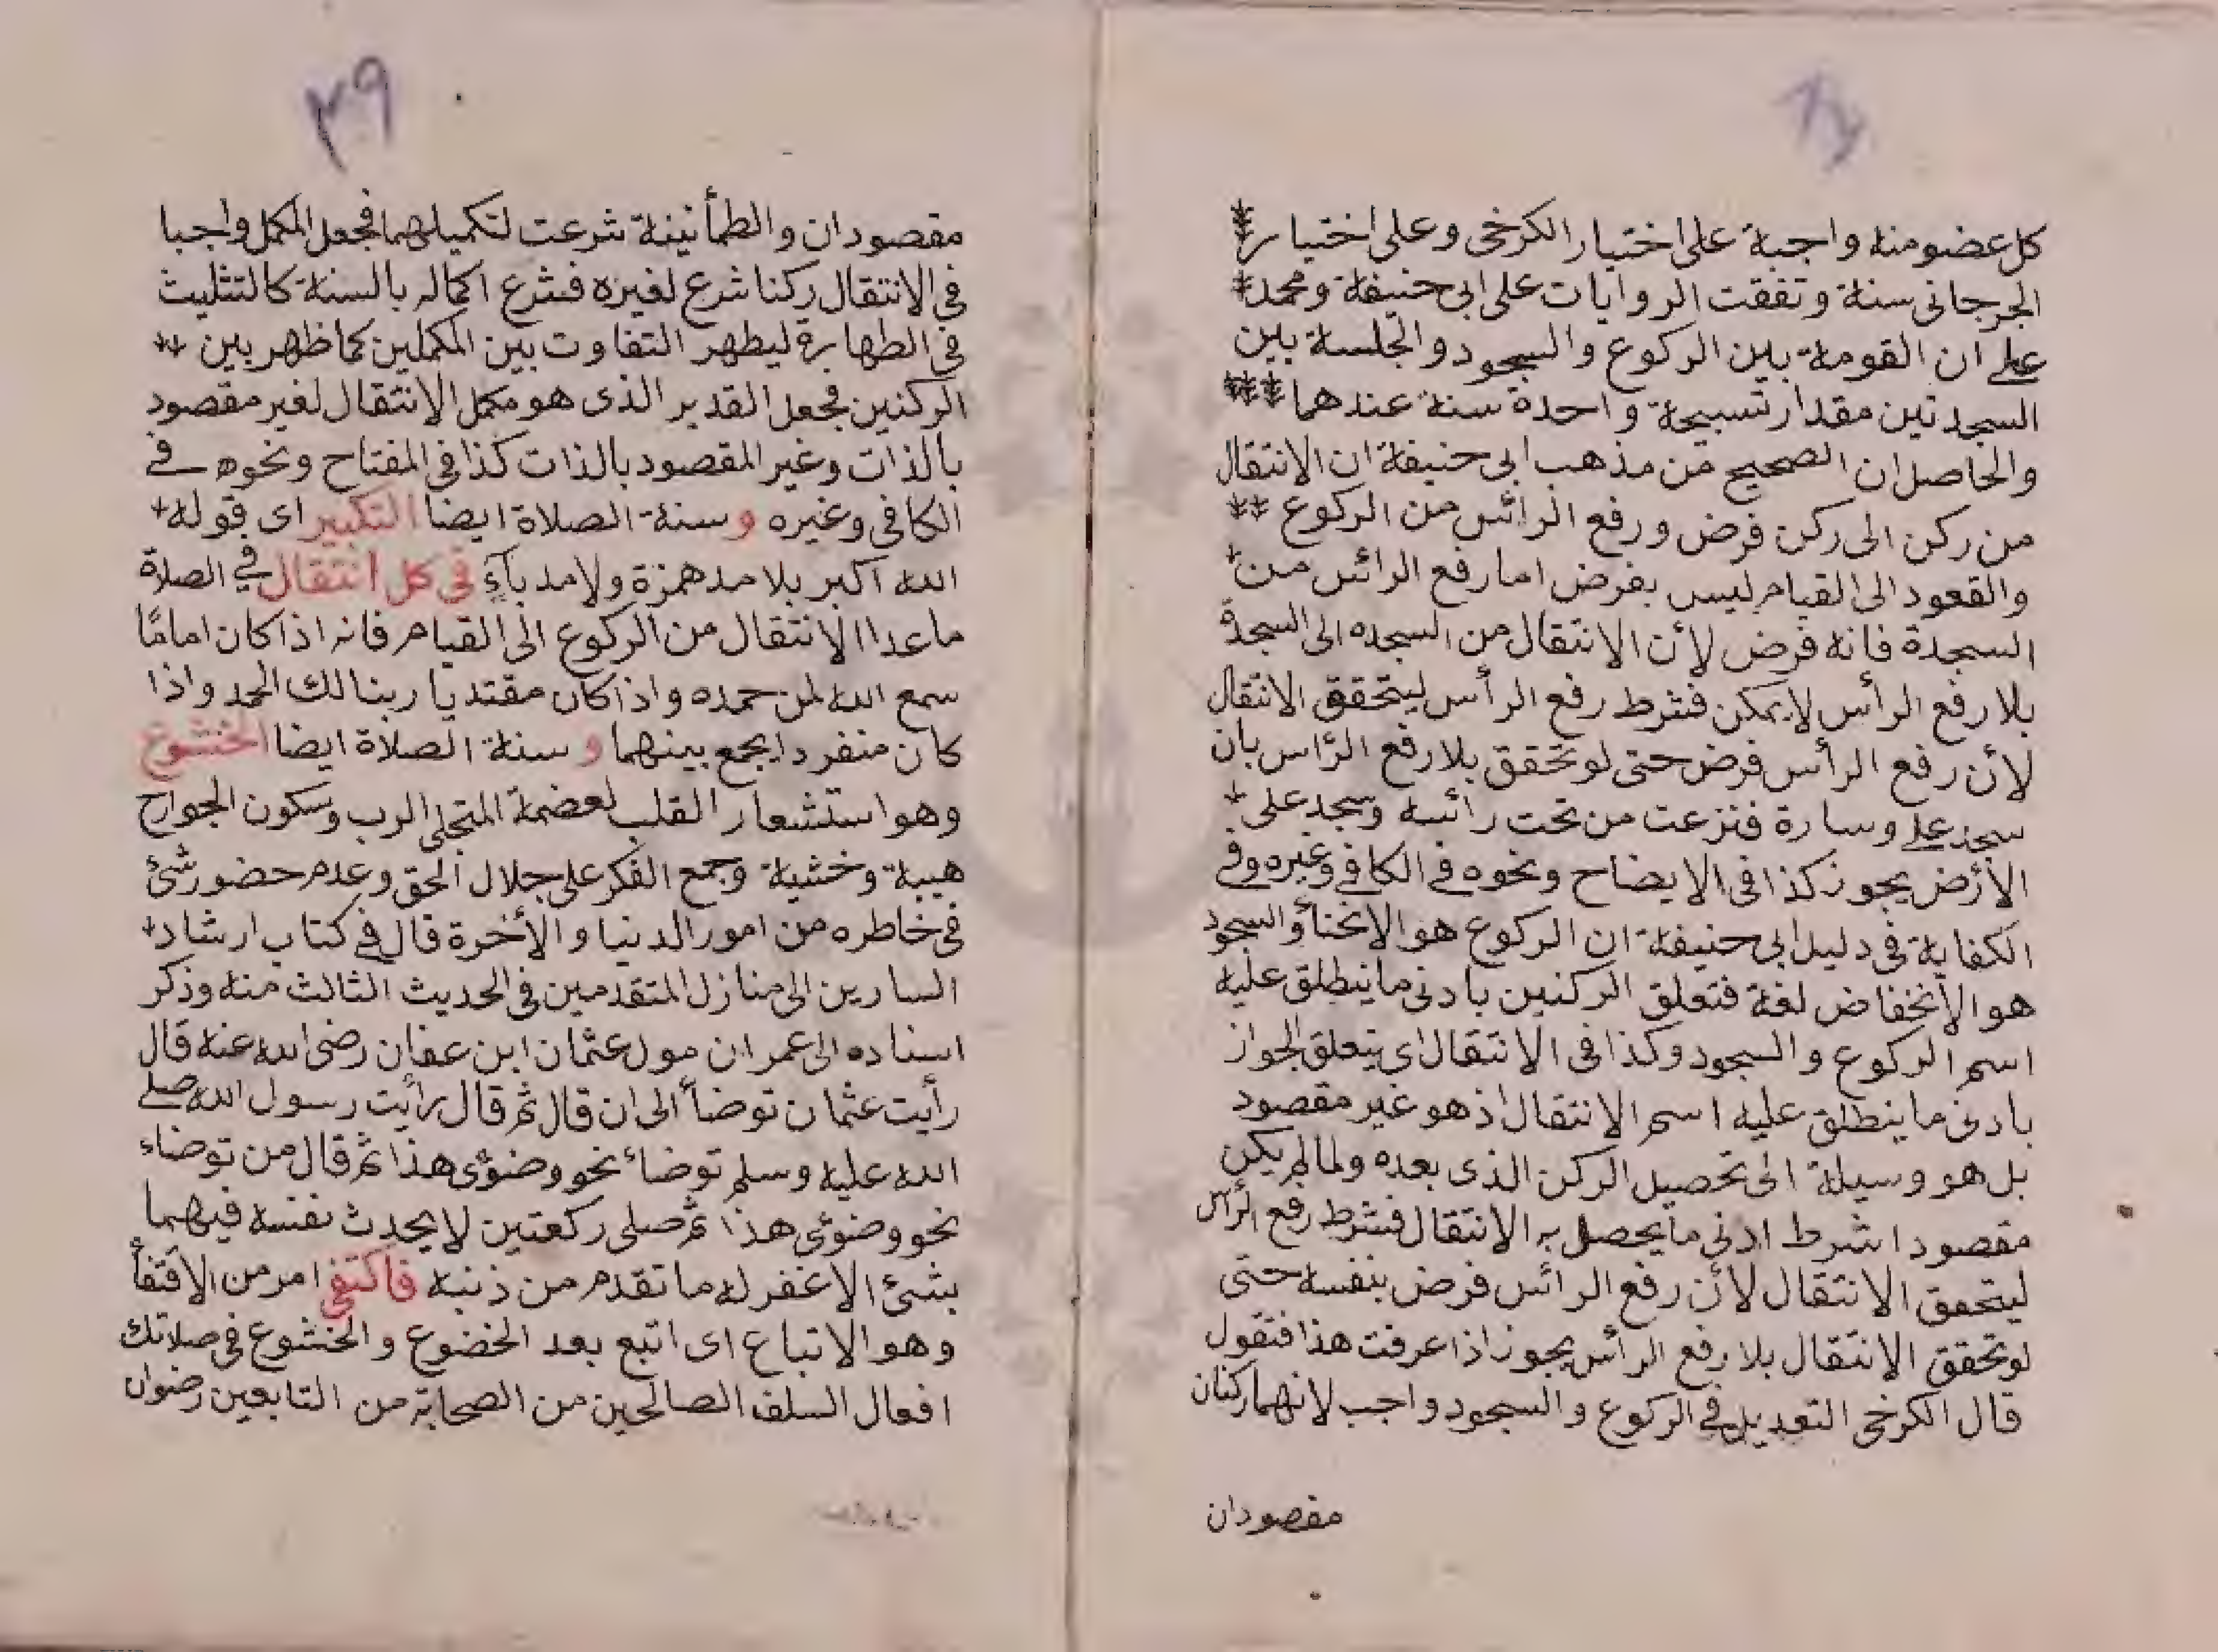 كل عضو منه واجبة على اختيار الكرخى وعلى اختيار
الجرجانى سنة وتفقت الروايات على ابى حنيفة ومحمد
على ان القومة بين الركوع والسجود والجلسة بين
السجدتين مقدار تسبيحة واحدة سنة عندهما
والحاصل ان الصحيح من مذهب ابى حنيفة ان الانتقال
من ركن الى ركن فرض ورفع الرائس من الركوع
والقعود الى القيام ليس بفرض اما رفع الرائس من
السجدة فانه فرض لأن الانتقال من السجده الى السجدة
بلا رفع الرأس لا يمكن فشرط رفع الرأس ليتحقق الانتقال
لأن رفع الرأس فرض حتى لو تحقق بلا رفع الرٔاس بان
سجد على وسارة فنزعت من تحت رائسه وسجد على
الأرض يجوز كذا فى الايضاح ونحوه فى الكافى وغيره وفى
الكفاية فى دليل ابى حنيفة ان الركوع هو الانحنأ والسجود
هو الأنخفاض لغة فتعلق الركنين بادنى ما ينطلق عليه
اسم الركوع والسجود وكذا فى الانتقال اى يتعلق الجواز
بادنى ما ينطلق عليه اسم الانتقال اذ هو غير مقصود
بل هو وسيلة الى تحصيل الركن الذى بعده ولما لم يكن
مقصودا شرط ادنى ما يحصل به الانتقال فشرط رفع الرأس
ليتحقق الانتقال لأن رفع الرائس فرض بنفسه حتى
لو تحقق الانتقال بلا رفع الرأس يجوز اذا عرفت هذا فتقول
قال الكرخى التعديل فى الركوع والسجود واجب لانهما ركنان
مقصودان
٣٩
مقصودان والطمأنينة شرعت لتكميلهما فجعل المكمل واجبا
فى الانتقال ركنا شرع لغيره فشرع اكماله بالسنة كالتثليث
فى الطهارة ليظهر التفاوت بين المكملين كما ظهر بين
الركنين فجعل القدير الذى هو مكمل الانتقال لغير مقصود
بالذات وغير المقصود بالذات كذا فى المفتاح ونحوه فى
الكافى وغيره و سنة الصلاة ايضا التكبير اى قوله
الله اكبر بلا مد همزة ولا مد باءٍ فى كل انتقال فى الصلاة
ماعدا الانتقال من الركوع الى القيام فانه اذا كان امامًا
سمع الله لمن حمده واذا كان مقتديا ربنا لك الحمد واذا
كان منفردا يجمع بينهما و سنة الصلاة ايضا الخشوع
وهو استشعار القلب لعضمة المتجلى الرب وسكون الجوارح
هيبة وخشية وجمع الفكر على جلال الحق وعدم حضور شئ
فى خاطره من امور الدنيا والأخرة قال فى كتاب ارشاد
السارين الى منازل المتقدمين فى الحديث الثالث منه وذكر
اسناده الى عمران مول عثمان ابن عفان رضى الله عنه قال
رأيت عثمان توضأ الى ان قال ثم قال رأيت رسول الله صلى
الله عليه وسلم توضاء نحو وضؤى هذا ثم قال من توضاء
نحو وضوئى هذا ثم صلى ركعتين لا يحدث نفسه فيهما
بشئ الا غفر له ما تقدم من ذنبه فاكتفى امر من الاقتفأ
وهو الاتباع اى اتبع بعد الخضوع والخشوع فى صلاتك
افعال السلف الصالحين من الصحابة من التابعين رضوان